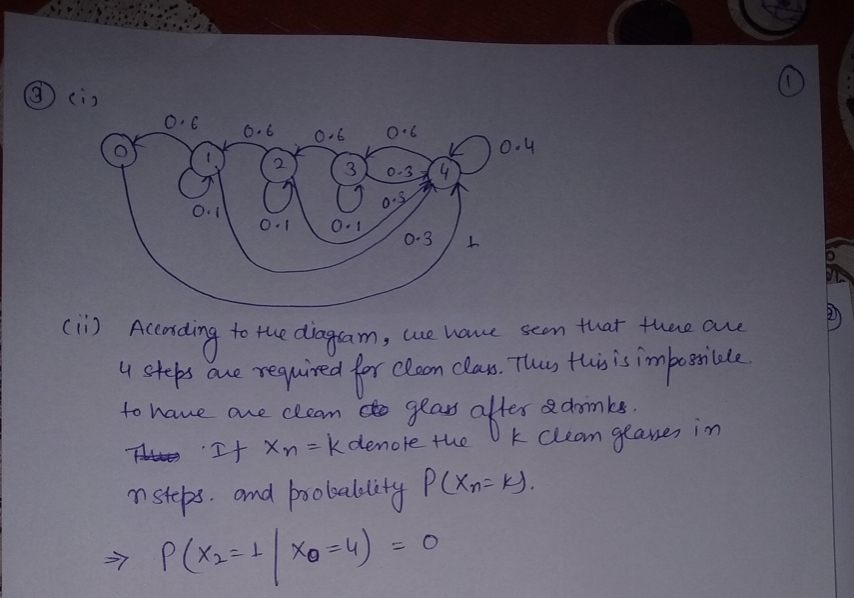 ③ (i) ①
0.6 0.6 0.6 0.6
0 1 2 3 4 0.4
0.3
0.1 0.1 0.1 0.3
0.3 1
(ii) According to the diagram, we have seen that there are
4 steps are required for clean class. Thus this is impossible
to have one clean glass after 2 drinks.
If Xn = k denote the k clean glasses in
n steps. and probability P(Xn=k).
⇒ P(X2=1 | X0=4) = 0